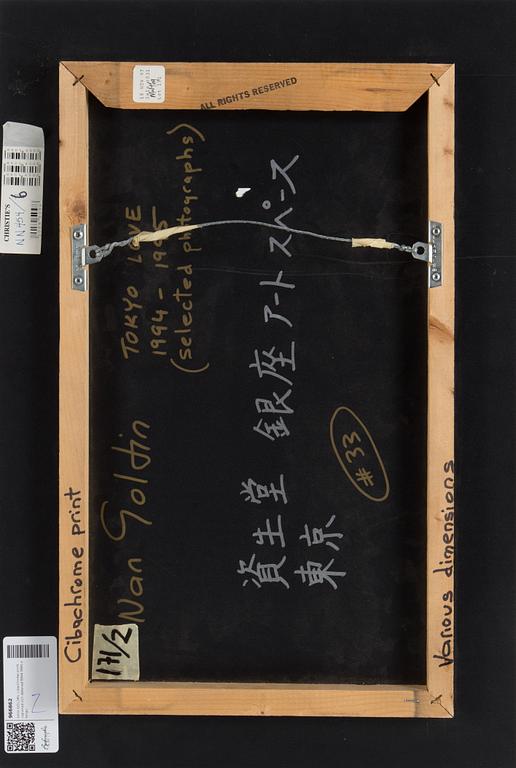 ALL RIGHTS RESERVED
CHRISTIE'S
NN454/6
TOKYO LOVE
1994 - 1995
(selected photographs)
Nan Goldin
資生堂 銀座アートスペース
東京
#33
Cibachrome print
Various dimensions
171/2
966662
Z